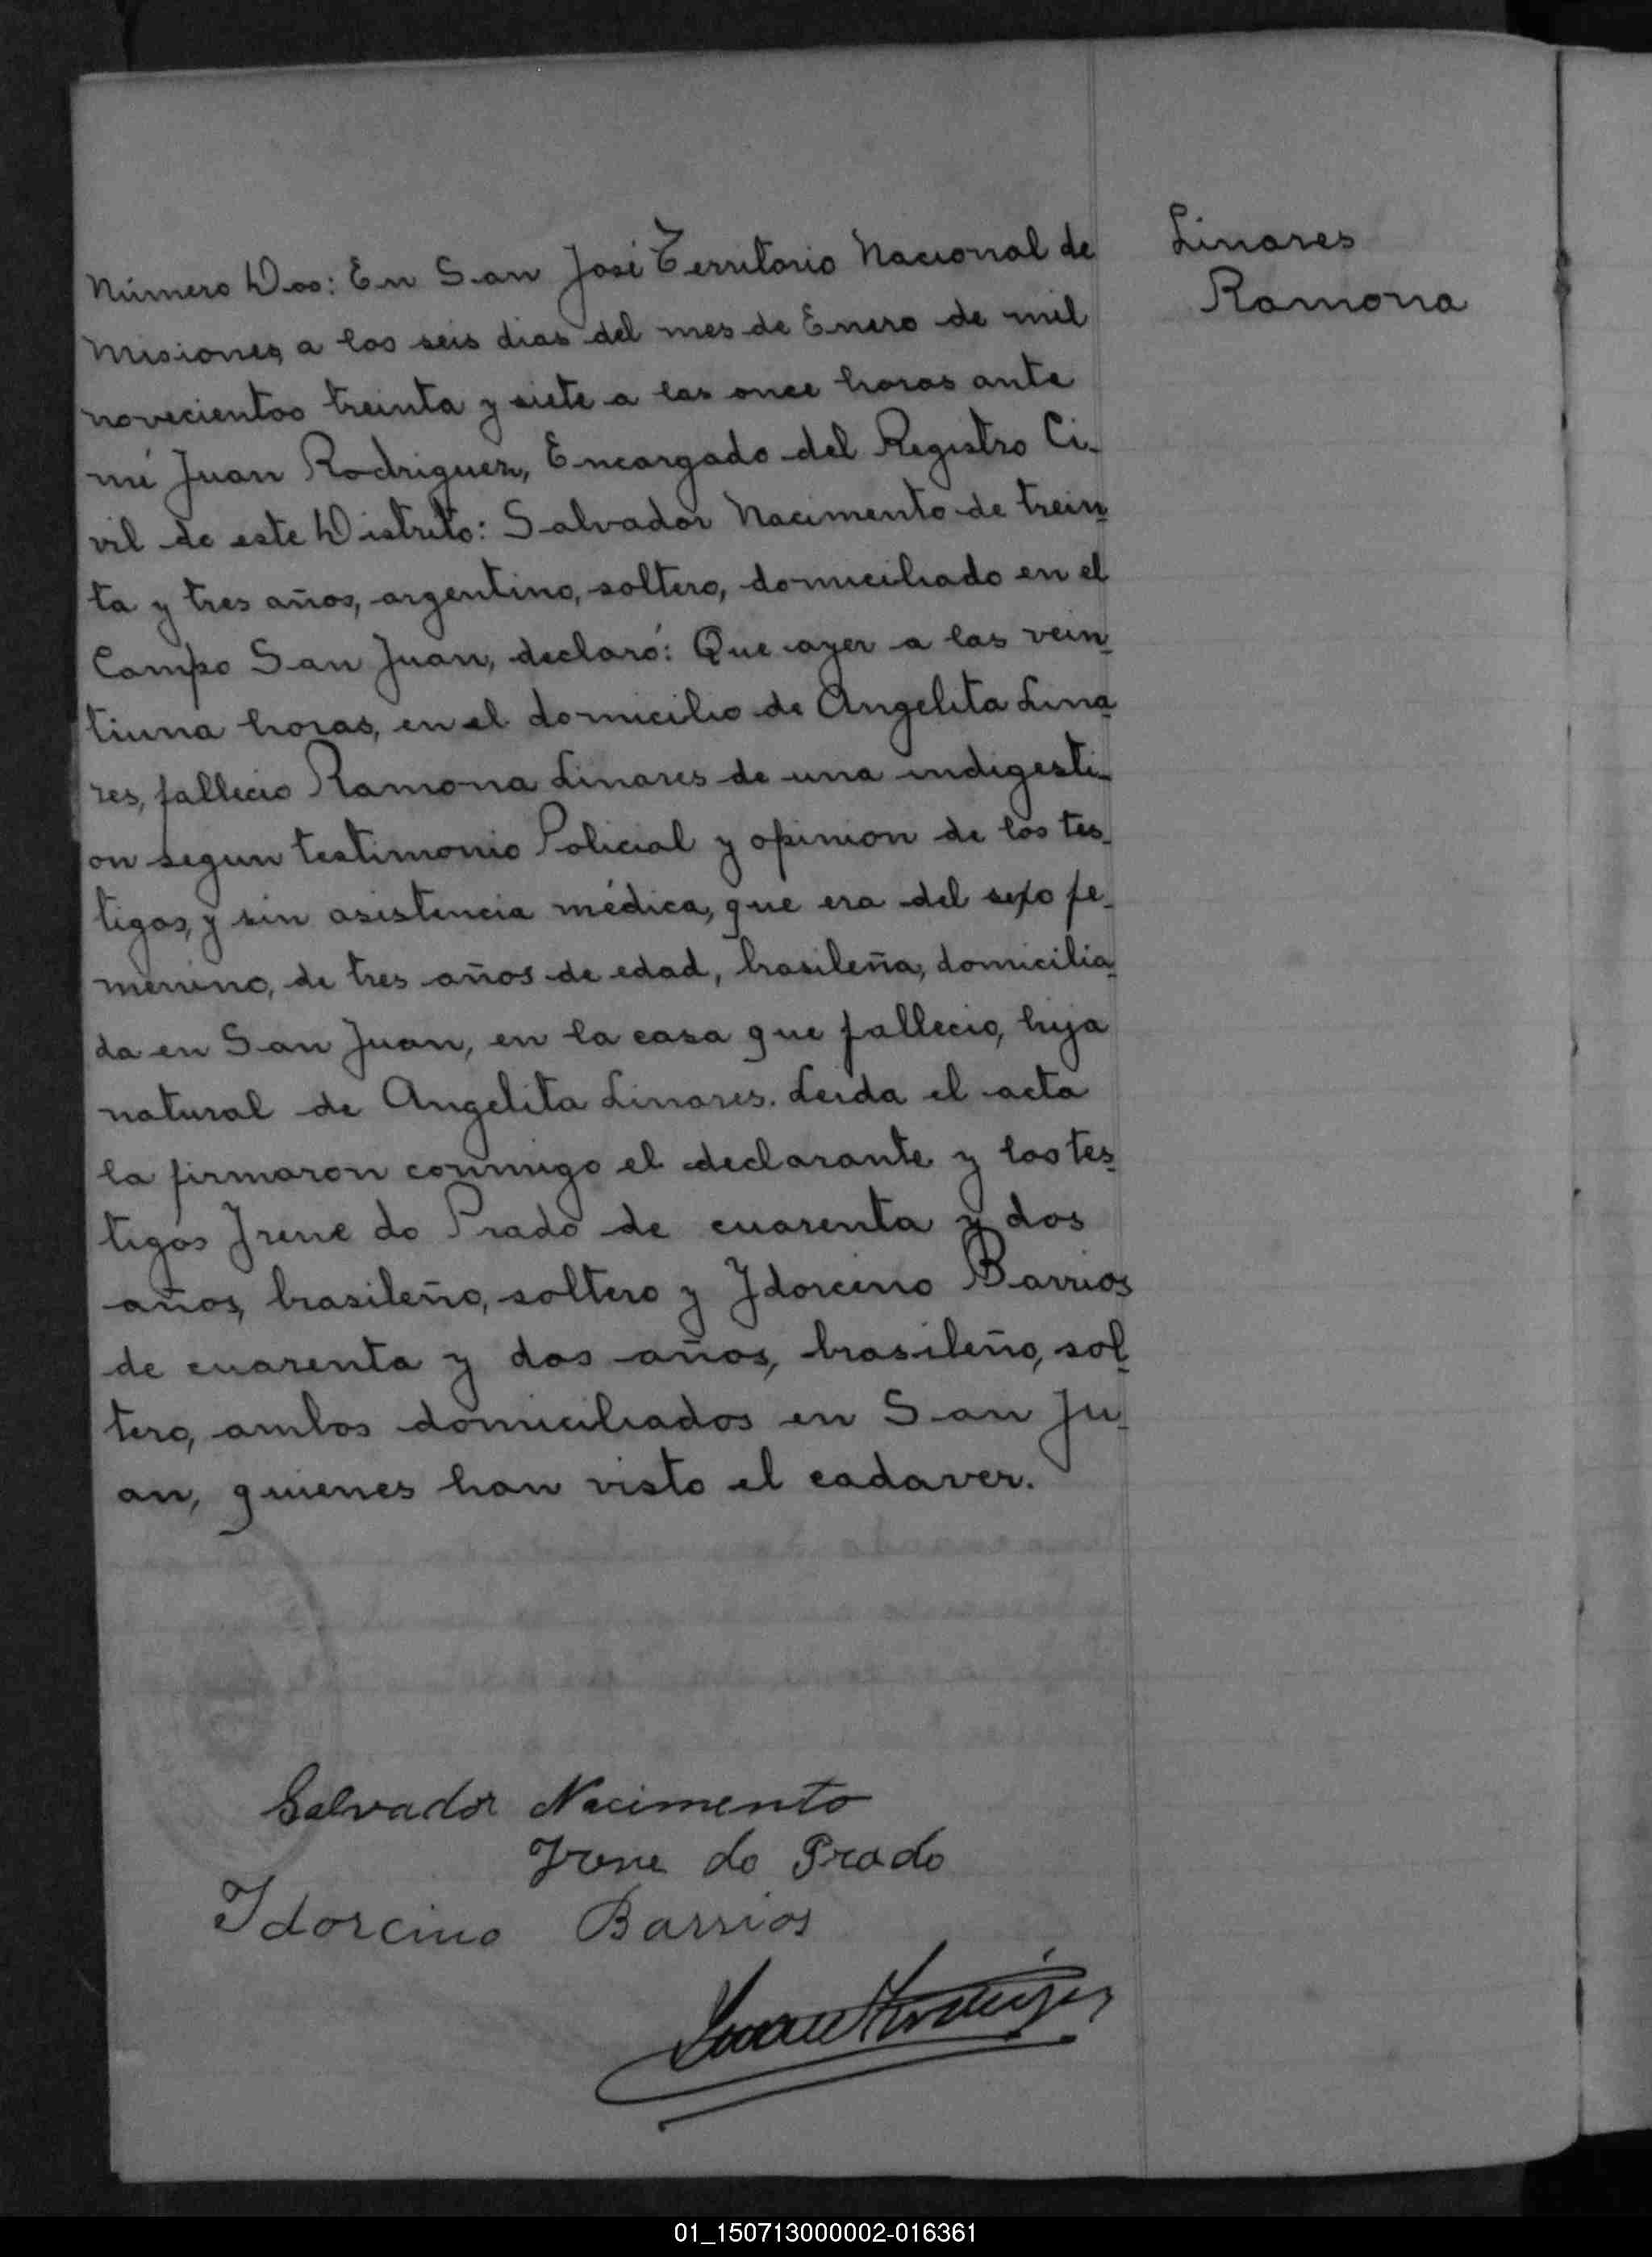 Linares
Ramona
Número Dos: En San José Territorio Nacional de
Misiones, a los seis dias del mes de Enero de mil
novecientos treinta y siete a las once horas ante
mí Juan Rodriguez, Encargado del Registro Ci-
vil de este Distrito: Salvador Nacimento de trein-
ta y tres años, argentino, soltero, domiciliado en el
Campo San Juan, declaró: Que ayer a las vein-
tiuna horas, en el domicilio de Angelita Lina-
res, fallecio Ramona Linares de una indigesti-
on segun testimonio Policial y opinion de los tes-
tigos, y sin asistencia médica, que era del sexo fe-
menino, de tres años de edad, brasileña, domicilia-
da en San Juan, en la casa que fallecio, hija
natural de Angelita Linares. Leida el acta
la firmaron conmigo el declarante y los tes-
tigos Irene do Prado de cuarenta y dos
años, brasileño, soltero y Idorcino Barrios
de cuarenta y dos años, brasileño, sol-
tero, ambos domiciliados en San Ju-
an, quienes han visto el cadaver.
Salvador Nacimento
Irene do Prado
Idorcino Barrios
Juan Rodriguez
01_150713000002-016361